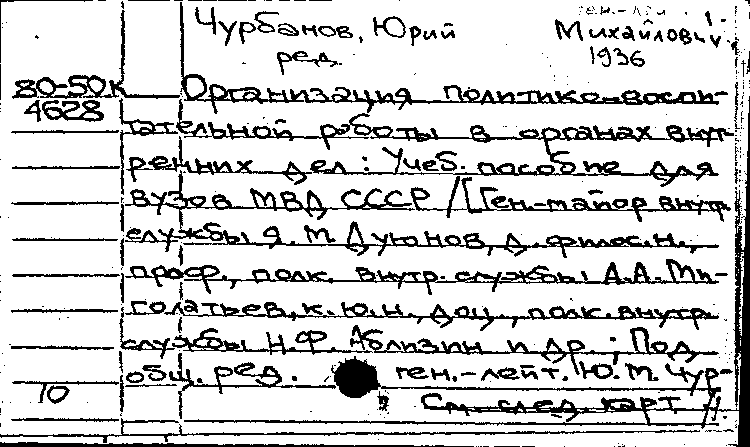 ген.-лейт.
Чурбанов, Юрий Михайлович.
ред. 1936
80-50к Организация политико-воспи-
4628
тательной работы в органах внут-
ренних дел: Учеб. пособие для
вузов МВД СССР /[Ген.-майор внутр.
службы Я. М. Дуюнов, д. филос. н.,
проф., полк. внутр. службы А.А. Ми-
голатьев, к. ю. н., доц., полк. внутр.
службы Н.Ф. Аблизин и др.; Под
общ. ред. ген.-лейт. Ю. М. Чур-
10
См. след. карт.